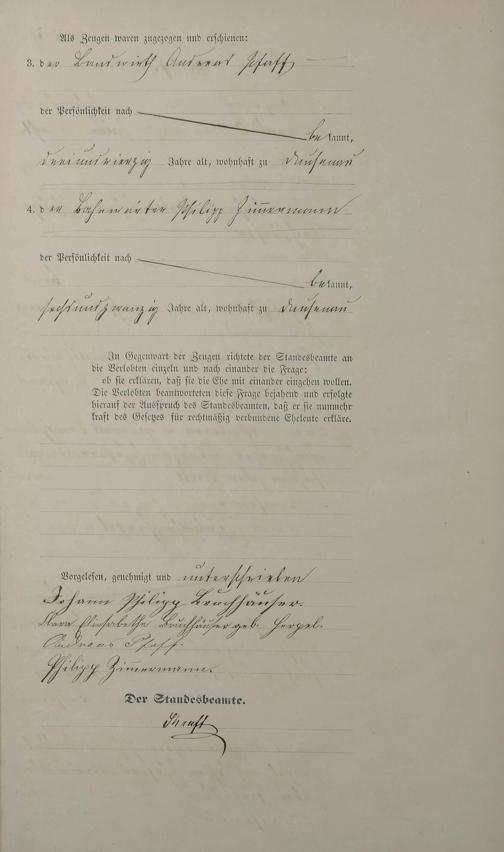 Als Zeugen waren zugezogen und erschienen:
3. der Landwirth Andreas Pfaff
der Persönlichkeit nach
be kannt,
dreiundvierzig Jahre alt, wohnhaft zu Dausenau
4. der Bahnwärter Philipp Zimmermann
der Persönlichkeit nach
be kannt,
sechsundzwanzig Jahre alt, wohnhaft zu Dausenau
In Gegenwart der Zeugen richtete der Standesbeamte an
die Verlobten einzeln und nach einander die Frage:
ob sie erklären, daß sie die Ehe mit einander eingehen wollen.
Die Verlobten beantworteten diese Frage bejahend und erfolgte
hierauf der Ausspruch des Standesbeamten, daß er sie nunmehr
kraft des Gesetzes für rechtmäßig verbundene Eheleute erkläre.
Vorgelesen, genehmigt und unterschrieben
Johann Philipp Bruchhäuser.
Elisabetha Bruchhäuser geb. Herpel.
Andreas Pfaff.
Philipp Zimmermann.
Der Standesbeamte.